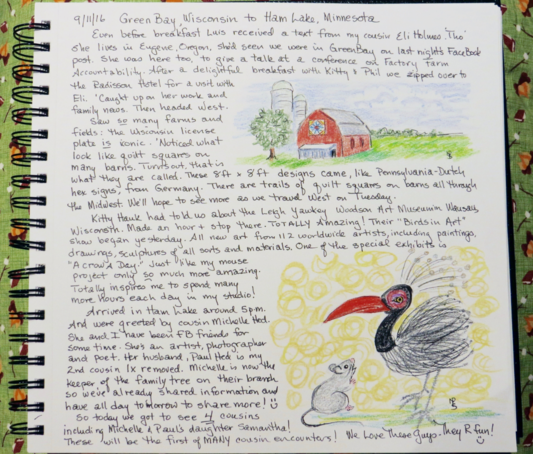 9/11/16 Green Bay, Wisconsin to Ham Lake, Minnesota
Even before breakfast Luis received a text from my cousin Eli Holmes. Tho'
she lives in Eugene, Oregon, she'd seen we were in Green Bay on last night's FaceBook
post. She was here too, to give a talk at a conference on Factory Farm
Accountability. After a delightful breakfast with Kitty & Phil we zipped over to
the Radisson Hotel for a visit with
Eli. Caught up on her work and
family news. Then headed West.
Saw so many farms and
fields: the Wisconsin license
plate is iconic. Noticed what
look like quilt squares on
many barns. Turns out, that is
what they are called. These 8ft x 8ft designs came, like Pennsylvania-Dutch
hex signs, from Germany. There are trails of quilt squares on barns all through
the Midwest. We'll hope to see more as we travel West on Tuesday.
Kitty Hauk had told us about the Leigh Yawkey Woodson Art Museum in Wausau,
Wisconsin. Made an hour + stop there. TOTALLY Amazing! Their "Birds in Art"
show began yesterday. All new art from 112 worldwide artists, including paintings,
drawings, sculptures of all sorts and materials. One of the special exhibits is
"A Crow a Day." Just like my mouse
project only so much more amazing.
Totally inspires me to spend many
more hours each day in my studio!
Arrived in Ham Lake around 5pm.
And were greeted by cousin Michelle Hed.
She and I have been FB friends for
some time. She's an artist, photographer
and poet. Her husband, Paul Hed is my
2nd cousin 1x removed. Michelle is now the
keeper of the family tree on their branch
so we've already shared information and
have all day tomorrow to share more!
So today we got to see 4 cousins
including Michelle & Paul's daughter Samantha!
These will be the first of MANY cousin encounters! We Love These Guys. They R fun!